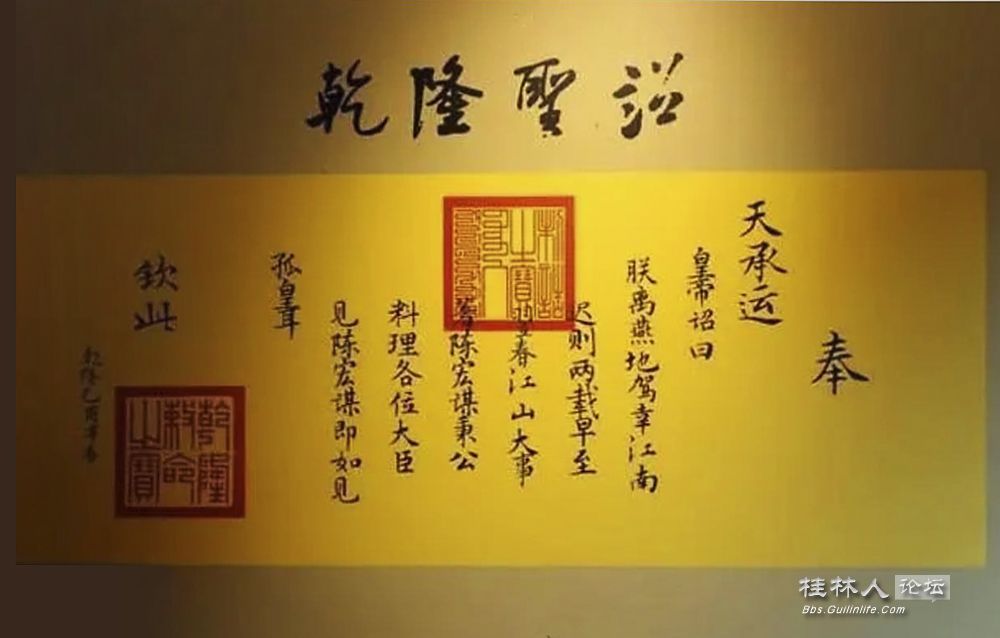 乾隆聖詔
奉
天承运
皇帝诏曰
朕禹燕地驾幸江南
迟则两载早至
春江山大事
陈宏谋秉公
料理各位大臣
见陈宏谋即如见
孤皇耳
钦此
乾隆乙酉年春
制誥之寶
乾隆敕命之寶
桂林人论坛
Bbs.Guilinlife.Com